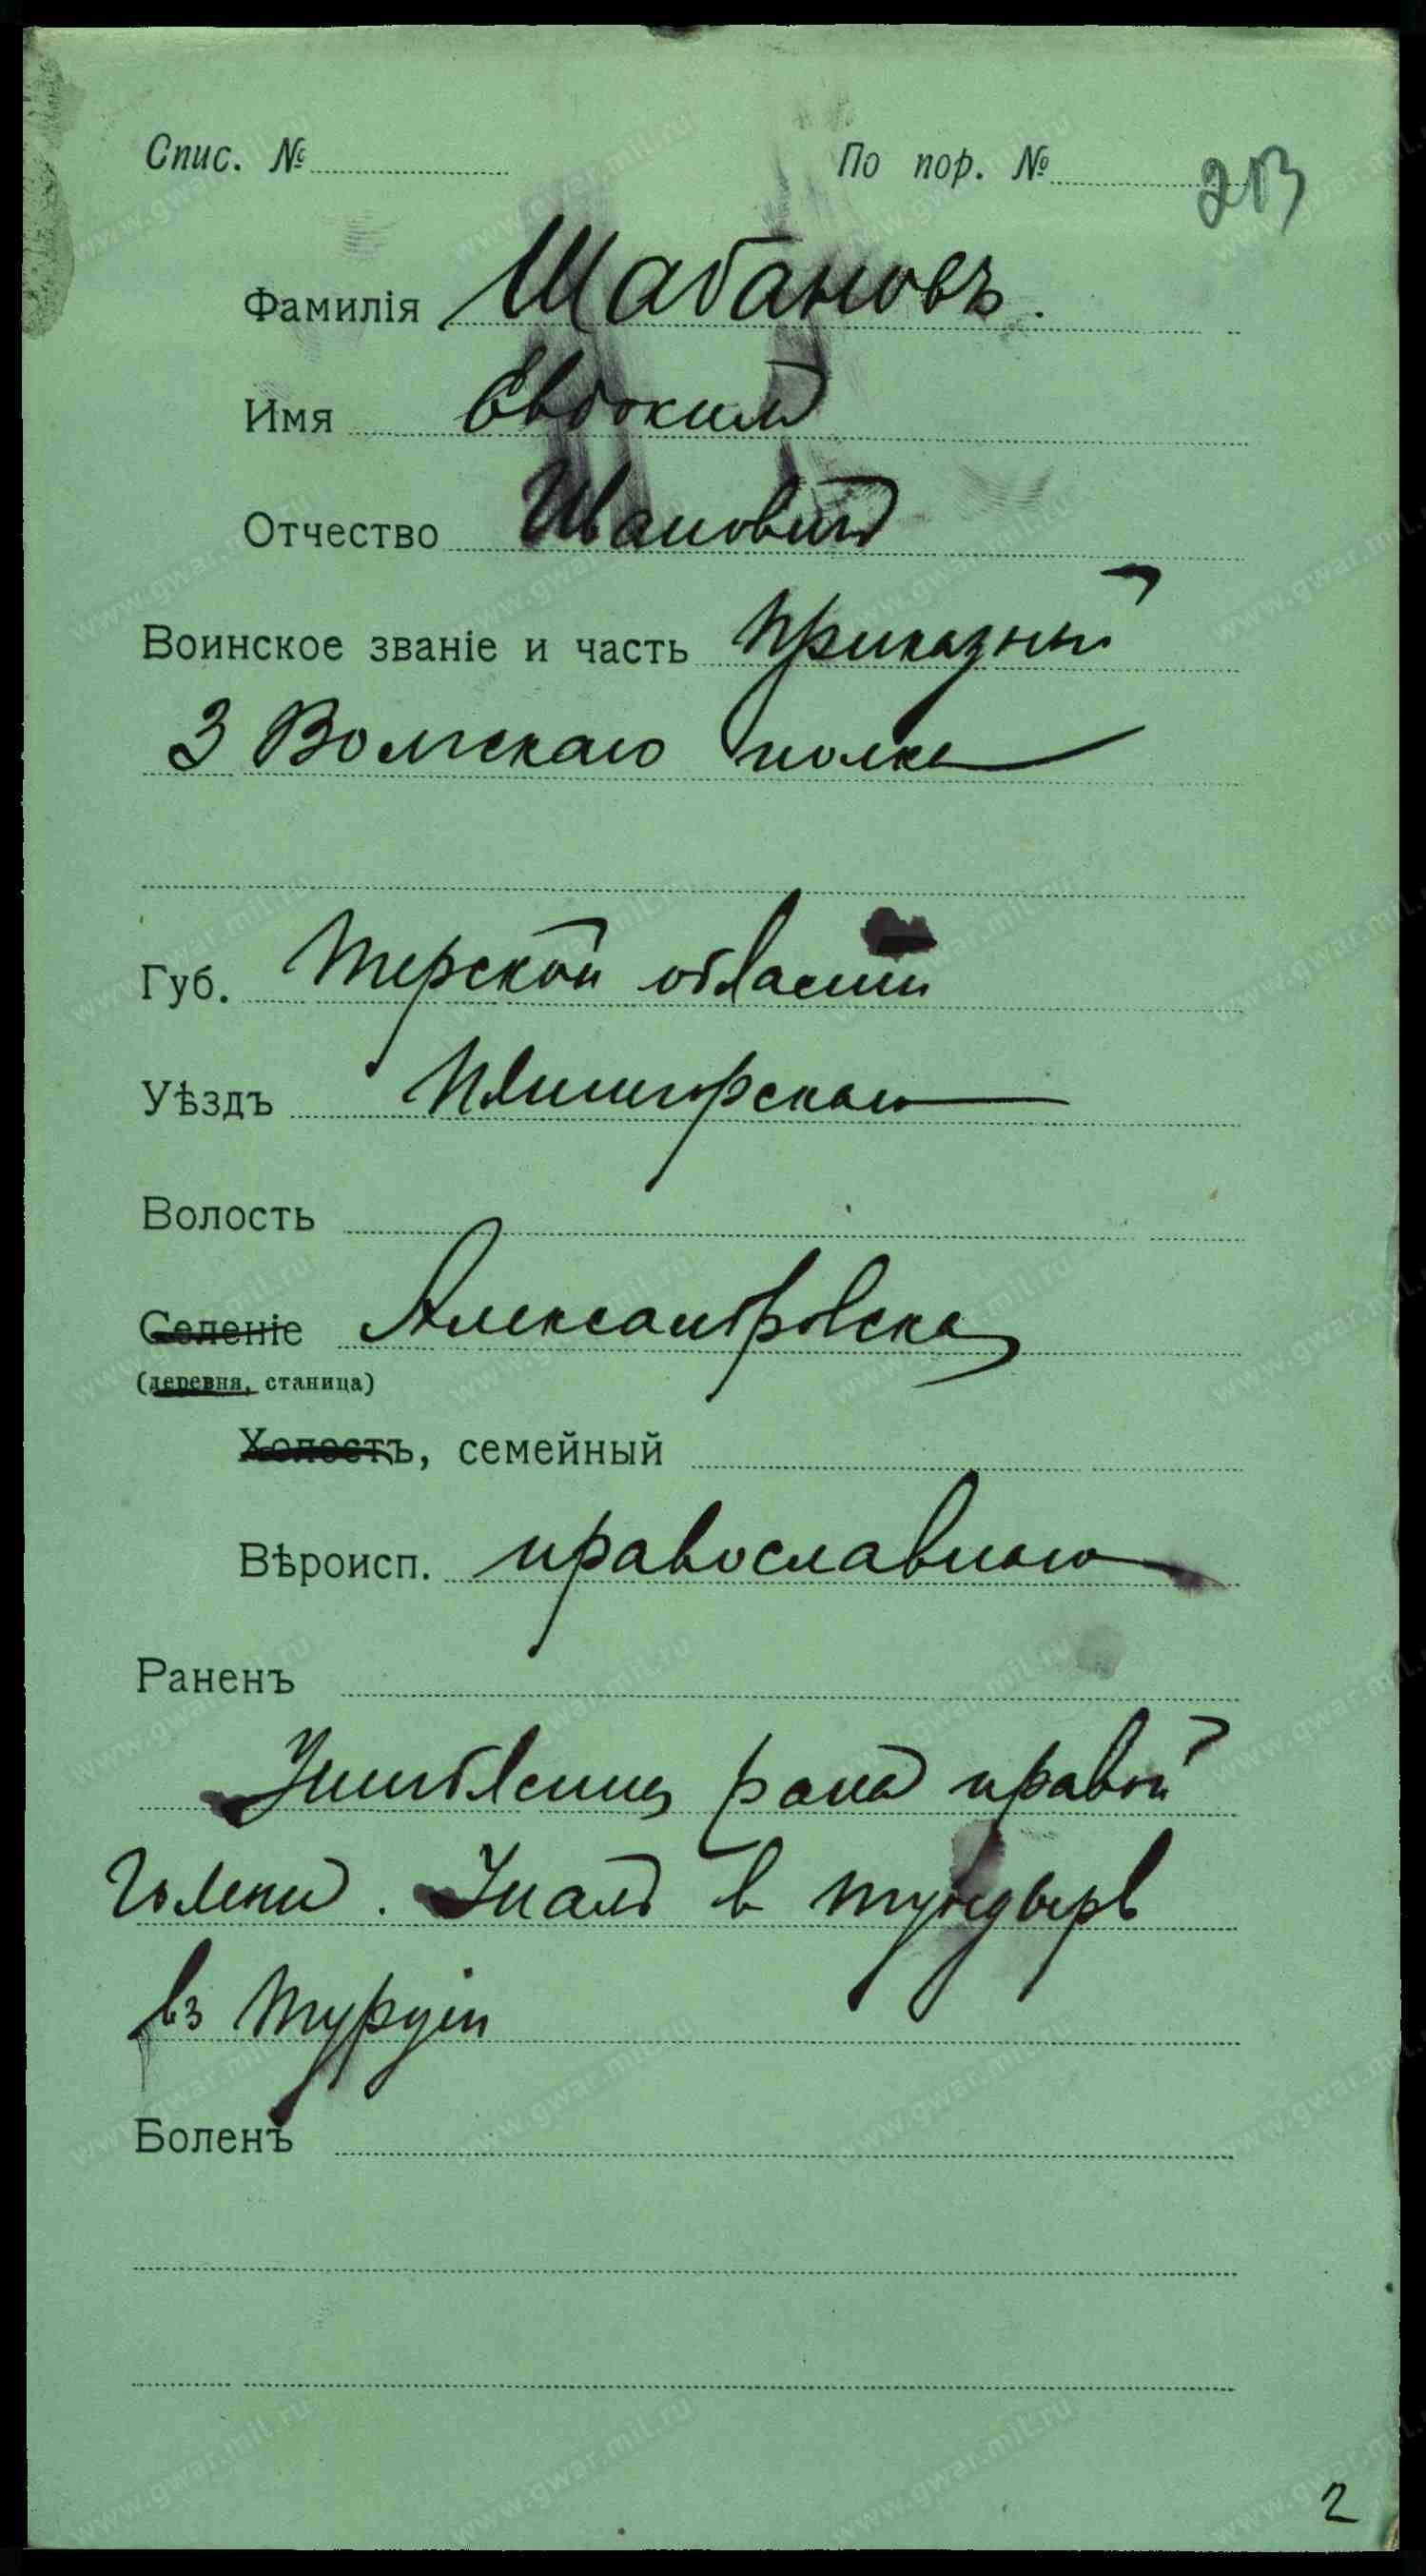 Спис. № По пор. № 213
Фамилія Шабановъ.
Имя Евдоким
Отчество Иванович
Воинское званіе и часть Приказный
3 Волгскаго полка
Губ. Терской области
Уѣздъ Пятигорскаго
Волость
Селеніе Александровская
(деревня, станица)
Холостъ, семейный
Вѣроисп. православнаго
Раненъ
Ушибленная рана правой
голени. Упалъ в тундырь
въ Турціи
Боленъ
2